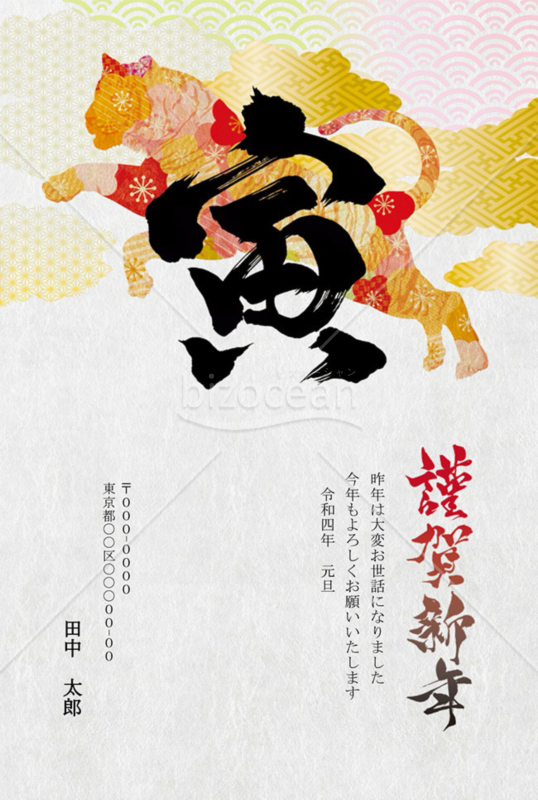 寅
bizocean
謹賀新年
昨年は大変お世話になりました
今年もよろしくお願いいたします
令和四年　元旦
〒000-0000
東京都〇〇区〇〇〇00-00
田中　太郎